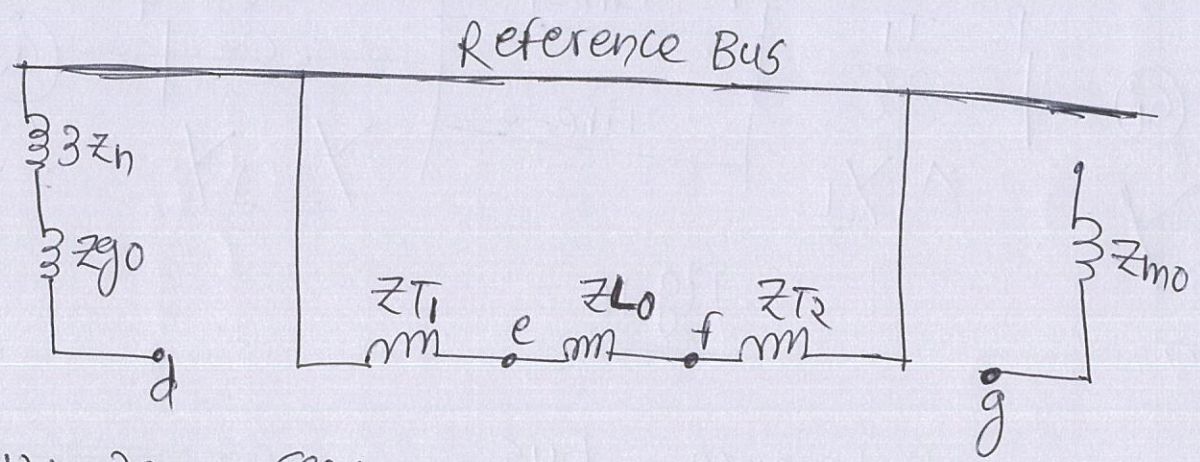 Reference Bus
3Zn
Zg0
ZT1
e
ZL0
f
ZT2
Zm0
d
g